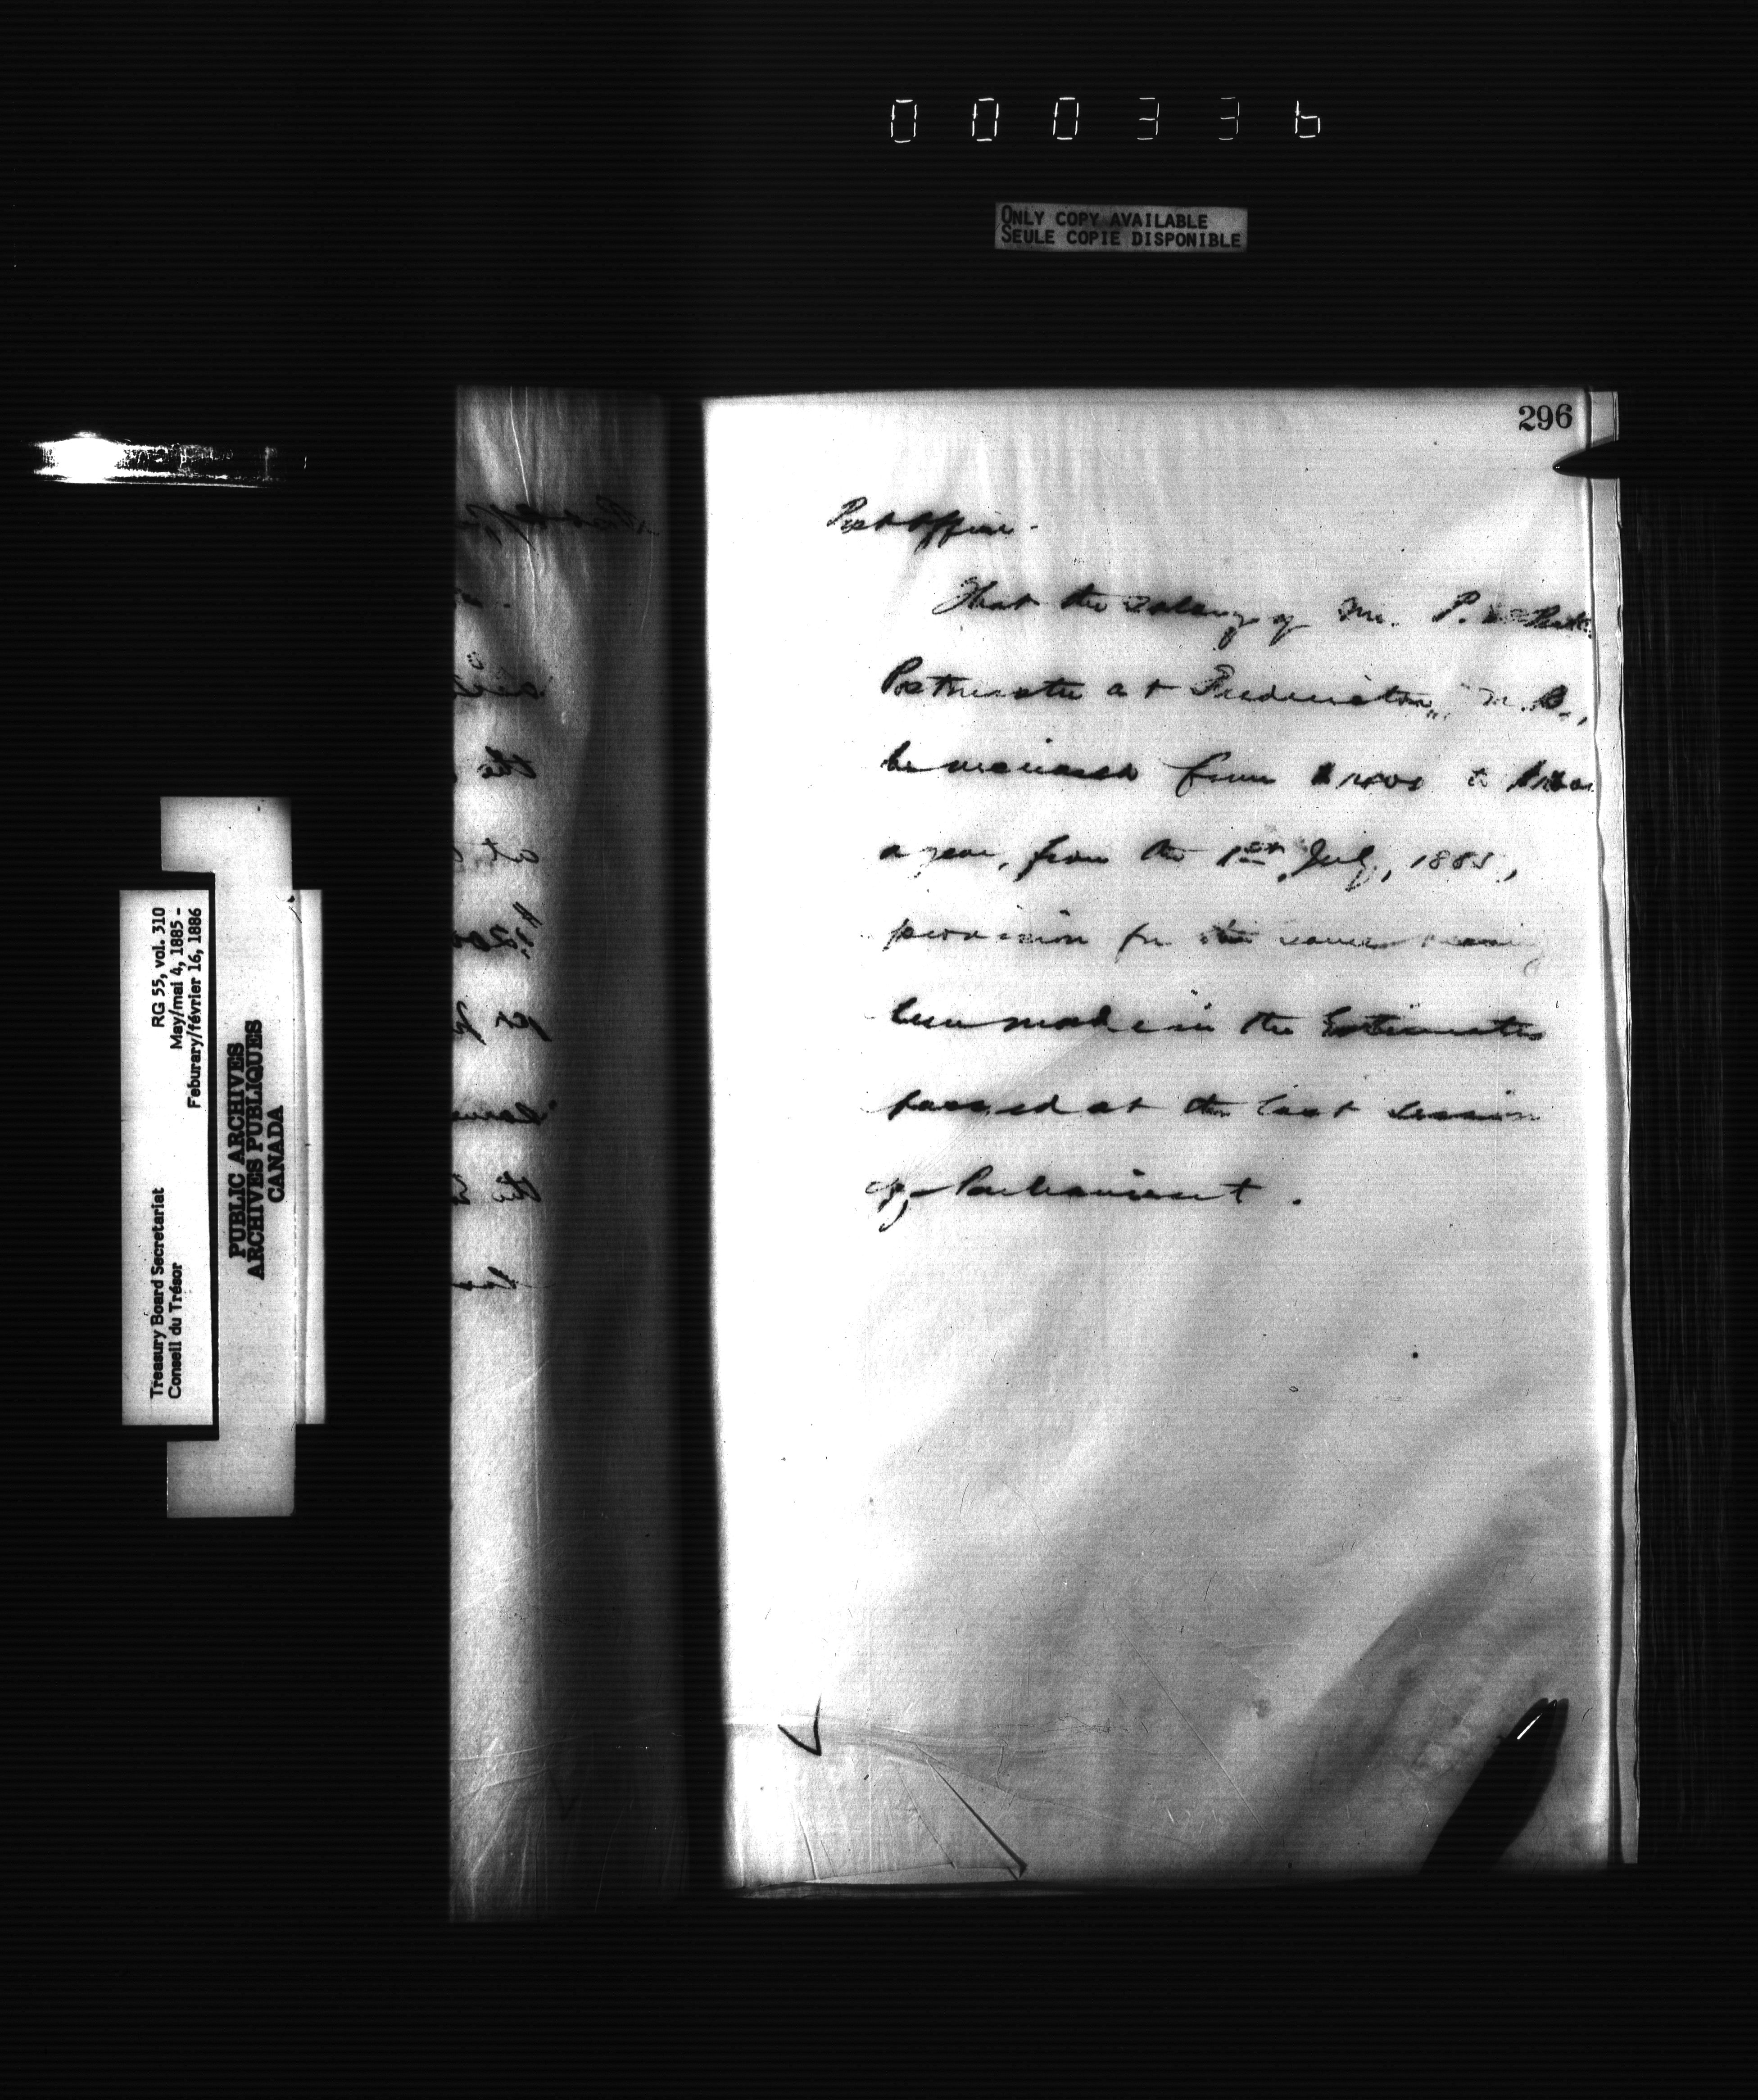 000336
ONLY COPY AVAILABLE
SEULE COPIE DISPONIBLE
296
Post Office.
That the salary of Mr. P.
Postmaster at Fredericton, N.B.,
be increased from to
a year, from the 1st July, 1885,
provision for the same having
been made in the Estimates
passed at the last session
of Parliament.
Treasury Board Secretariat RG 55, vol. 310
Conseil du Trésor May/mai 4, 1885 -
Feburary/février 16, 1886
PUBLIC ARCHIVES
ARCHIVES PUBLIQUES
CANADA